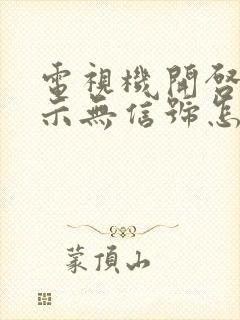 電視機開啓
示無信號怎
蒙頂山